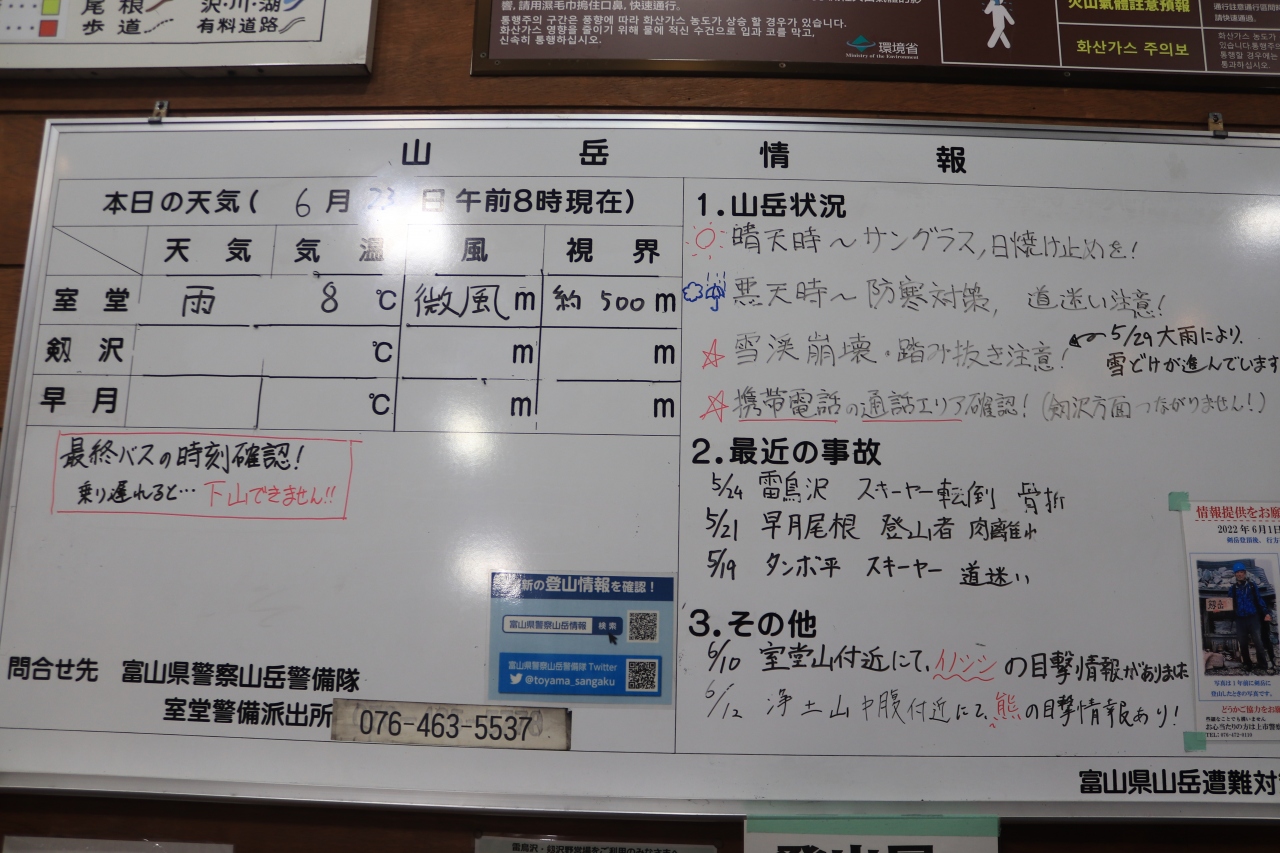 尾根 沢・川・湖
歩道 有料道路
響, 請用濕毛巾摀住口鼻, 快速通行。
통행주의 구간은 풍향에 따라 화산가스 농도가 상승 할 경우가 있습니다.
화산가스 영향을 줄이기 위해 물에 적신 수건으로 입과 코를 막고,
신속히 통행하십시오.
環境省
Ministry of the Environment
火山氣體註意預報
請快速通過。
화산가스 주의보
화산가스 농도가
통과하십시오.
山岳情報
本日の天気( 6月23日午前8時現在)
天気 気温 風 視界
室堂 雨 8℃ 微風m 約500m
剱沢 ℃ m m
早月 ℃ m m
最終バスの時刻確認!
乗り遅れると…下山できません!!
新の登山情報を確認!
富山県警察山岳情報 検索
富山県警察山岳警備隊 Twitter
@toyama_sangaku
問合せ先 富山県警察山岳警備隊
室堂警備派出所
076-463-5537
1.山岳状況
晴天時～サングラス,日焼け止めを!
悪天時～防寒対策, 道迷い注意!
☆雪渓崩壊・踏み抜き注意! ←5/29大雨により、
雪どけが進んでいます
☆携帯電話の通話エリア確認! (剱沢方面つながりません!)
2.最近の事故
5/24 雷鳥沢 スキーヤー転倒 骨折
5/21 早月尾根 登山者 肉離れ
5/19 タンボ平 スキーヤー 道迷い
3.その他
6/10 室堂山付近にて、イノシシの目撃情報がありました
6/12 浄土山中腹付近にて、熊の目撃情報あり!
情報提供をお願
2022年6月1日
剱岳登頂後、行方
剱岳
写真は1年前に剱岳に
登山したときの写真です。
どうかご協力をお願
お心当たりの方は上市警察
富山県山岳遭難対